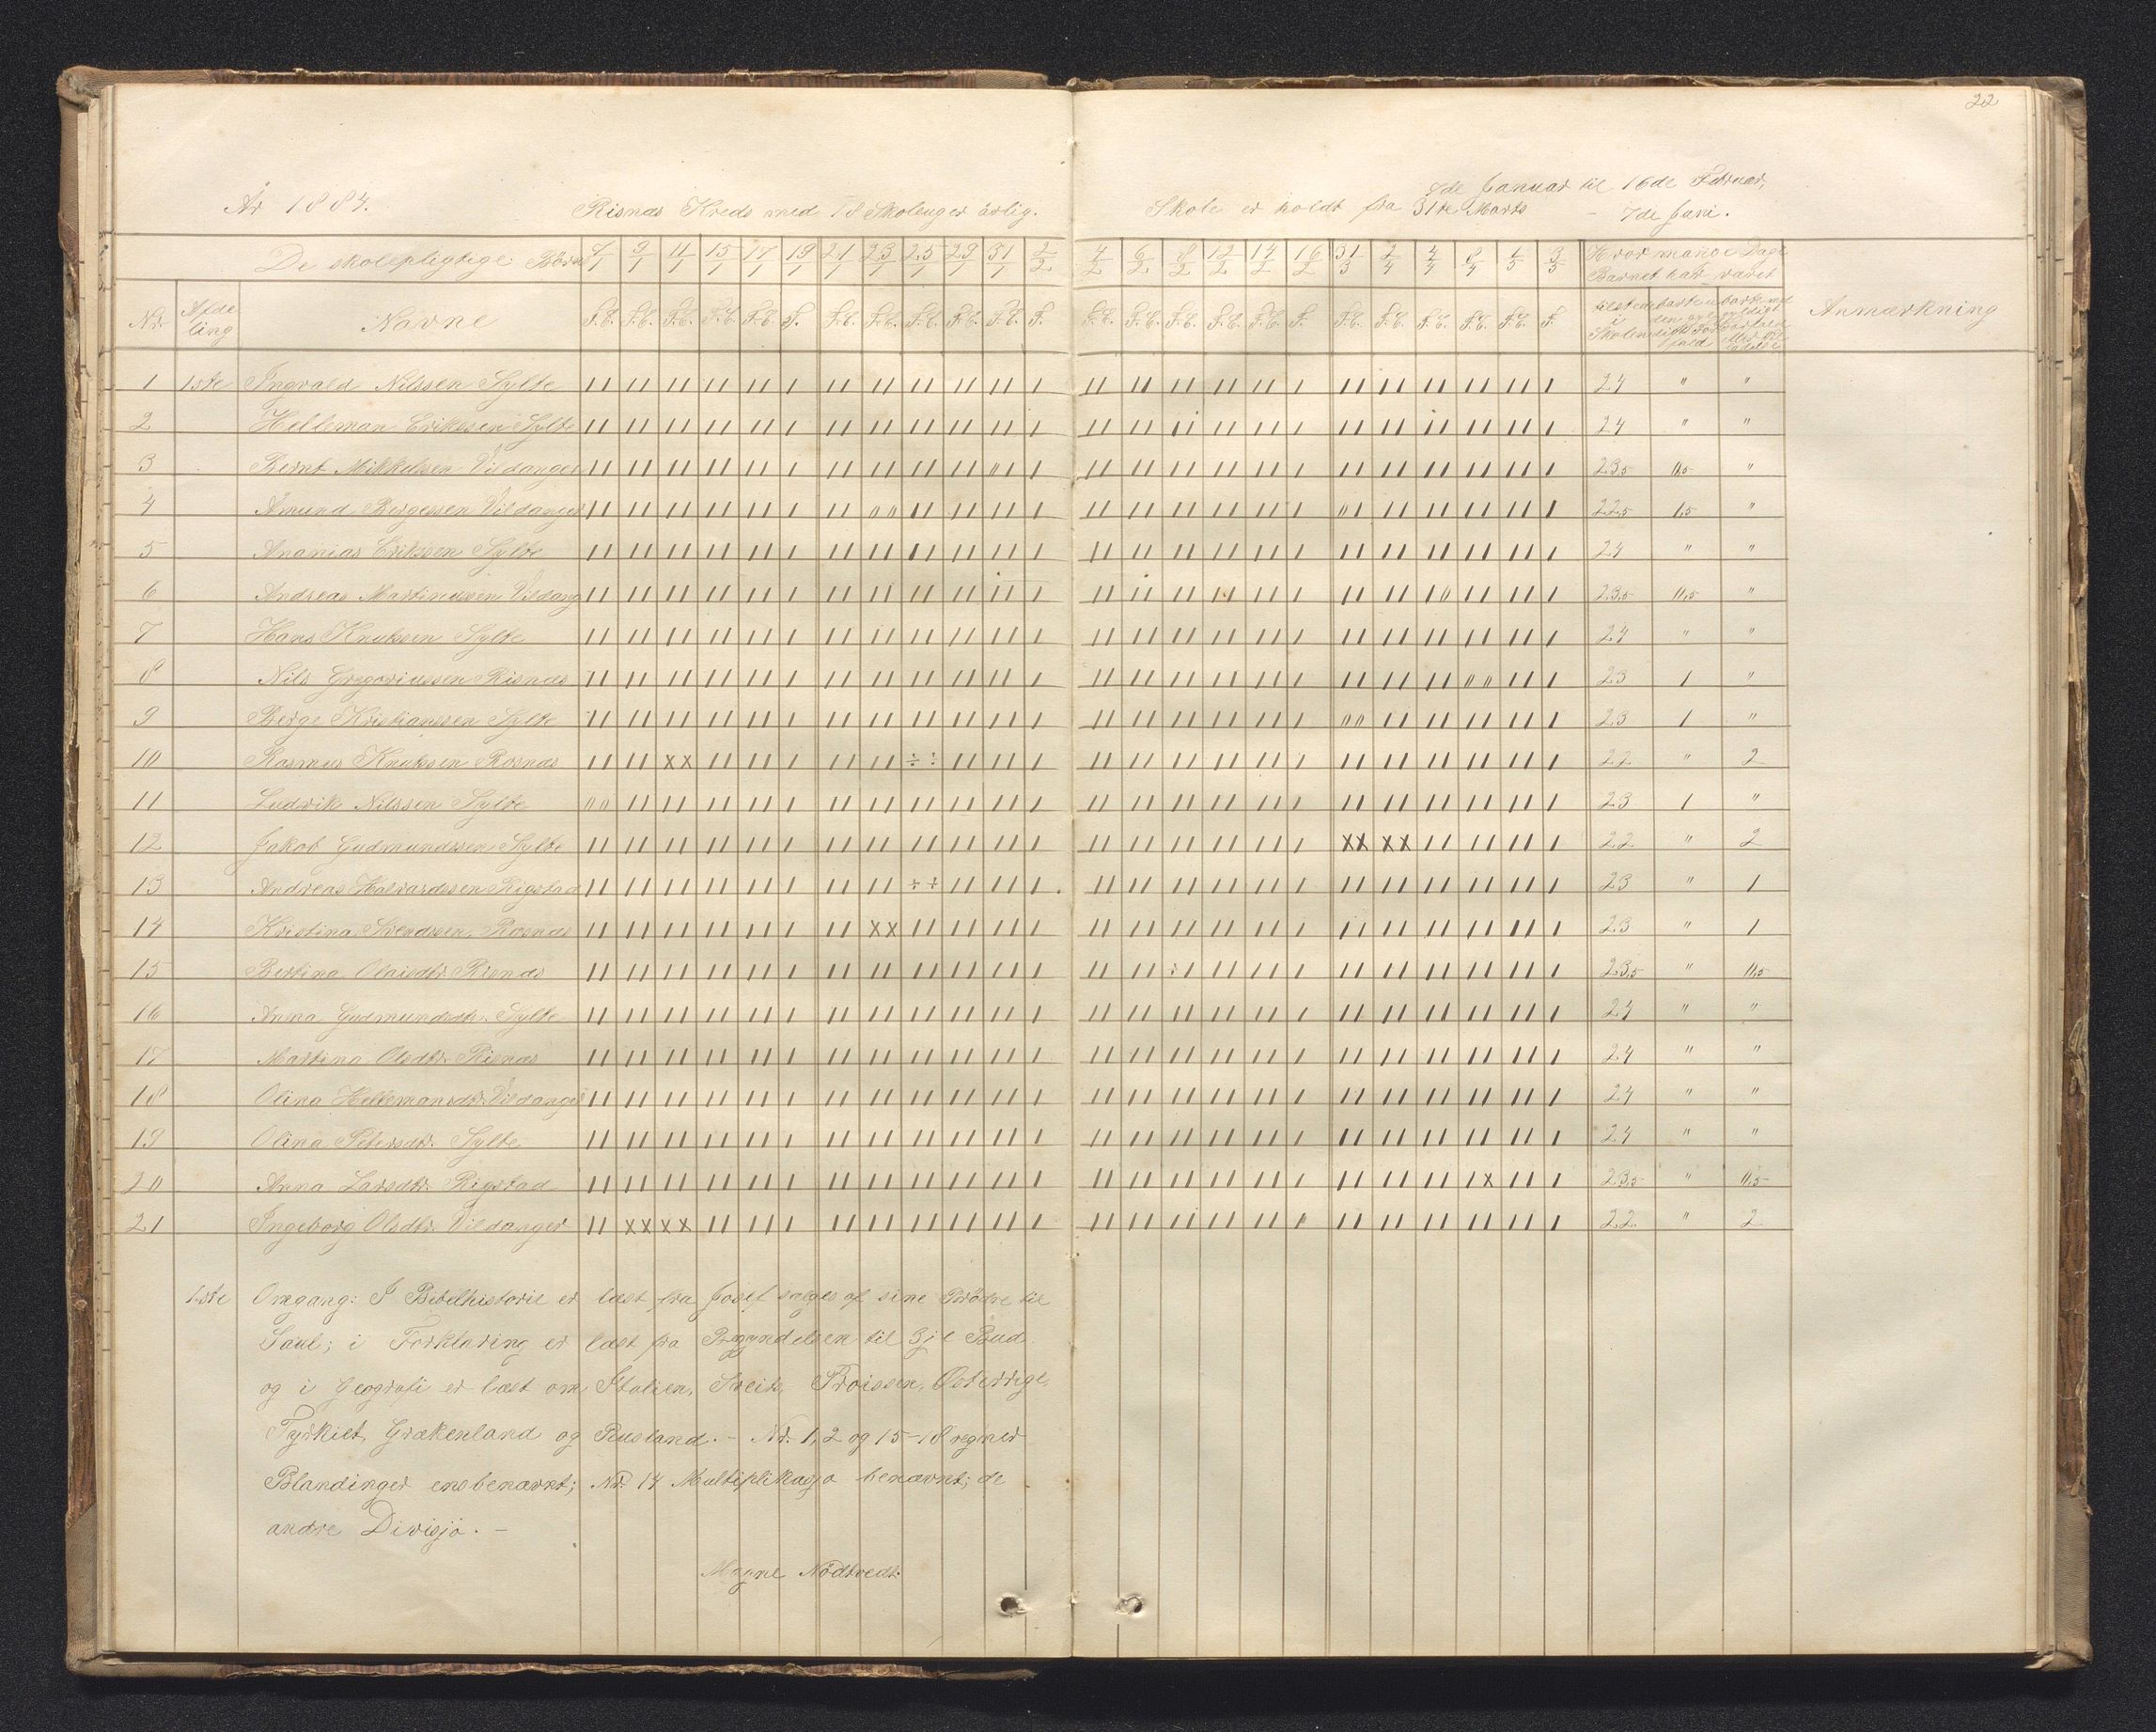 22
År 1884. Risnæs Kreds med 18 Skoleuger årlig. Skole er holdt fra 7de Januar til 16de Februar,
31te Marts - 7de Juni.
De skolepligtige Børns 7/1 9/1 11/1 15/1 17/1 19/1 21/1 23/1 25/1 29/1 31/1 2/2 4/2 6/2 8/2 12/2 14/2 16/2 31/3 2/4 4/4 8/4 1/5 3/5 Hvor mange Dage Barnet har været
Nr. Afdeling Navne F.E. F.E. F.E. F.E. F.E. F. F.E. F.E. F.E. F.E. F.E. F. F.E. F.E. F.E. F.E. F.E. F. F.E. F.E. F.E. F.E. F.E. F. tilstede i Skolen Anmærkning
1 1ste Ingvald Nilssen Sylte 24 " "
2 Helleman Erikssen Sylte 24 " "
3 Bernt Mikkelssen Vildanger 23,5 0,5 "
4 Amund Bergessen Vildanger 22,5 1,5 "
5 Ananias Erikssen Sylte 24 " "
6 Andreas Martinussen Vildang 23,5 0,5 "
7 Hans Knutssen Sylte 24 " "
8 Nils Gregoriussen Risnæs 23 1 "
9 Berge Kristianssen Sylte 23 1 "
10 Rasmus Knutssen Rosnæs 22 " 2
11 Ludvik Nilssen Sylte 23 1 "
12 Jakob Gudmundssen Sylte 22 " 2
13 Andreas Halvardssen Rigstad 23 " 1
14 Kristina Svendssen Rosnæs 23 " 1
15 Bertina Olaisdtr. Risnæs 23,5 " 0,5
16 Anna Gudmundsdtr. Sylte 24 " "
17 Martina Olsdtr. Risnæs 24 " "
18 Olina Hellemansdtr. Vildanger 24 " "
19 Olina Petersdtr. Sylte 24 " "
20 Anna Larsdtr. Rigstad 23,5 " 0,5
21 Ingeborg Olsdtr. Vildanger 22 " 2
1ste Omgang: I Bibelhistorie er læst fra Josef sælges af sine Brødre til
Saul; i Forklaring er læst fra Begyndelsen til 3je Bud
og i Geografi er læst om Italien, Sveits, Proissen, Østerrige,
Tyrkiet, Grækenland og Rusland. - Nr. 1, 2 og 15-18 regner
Blandinger ensbenævnt; Nr. 14 Multiplikasjo benævnt; de
andre Divisjo. -
Magne Nødtvedt.